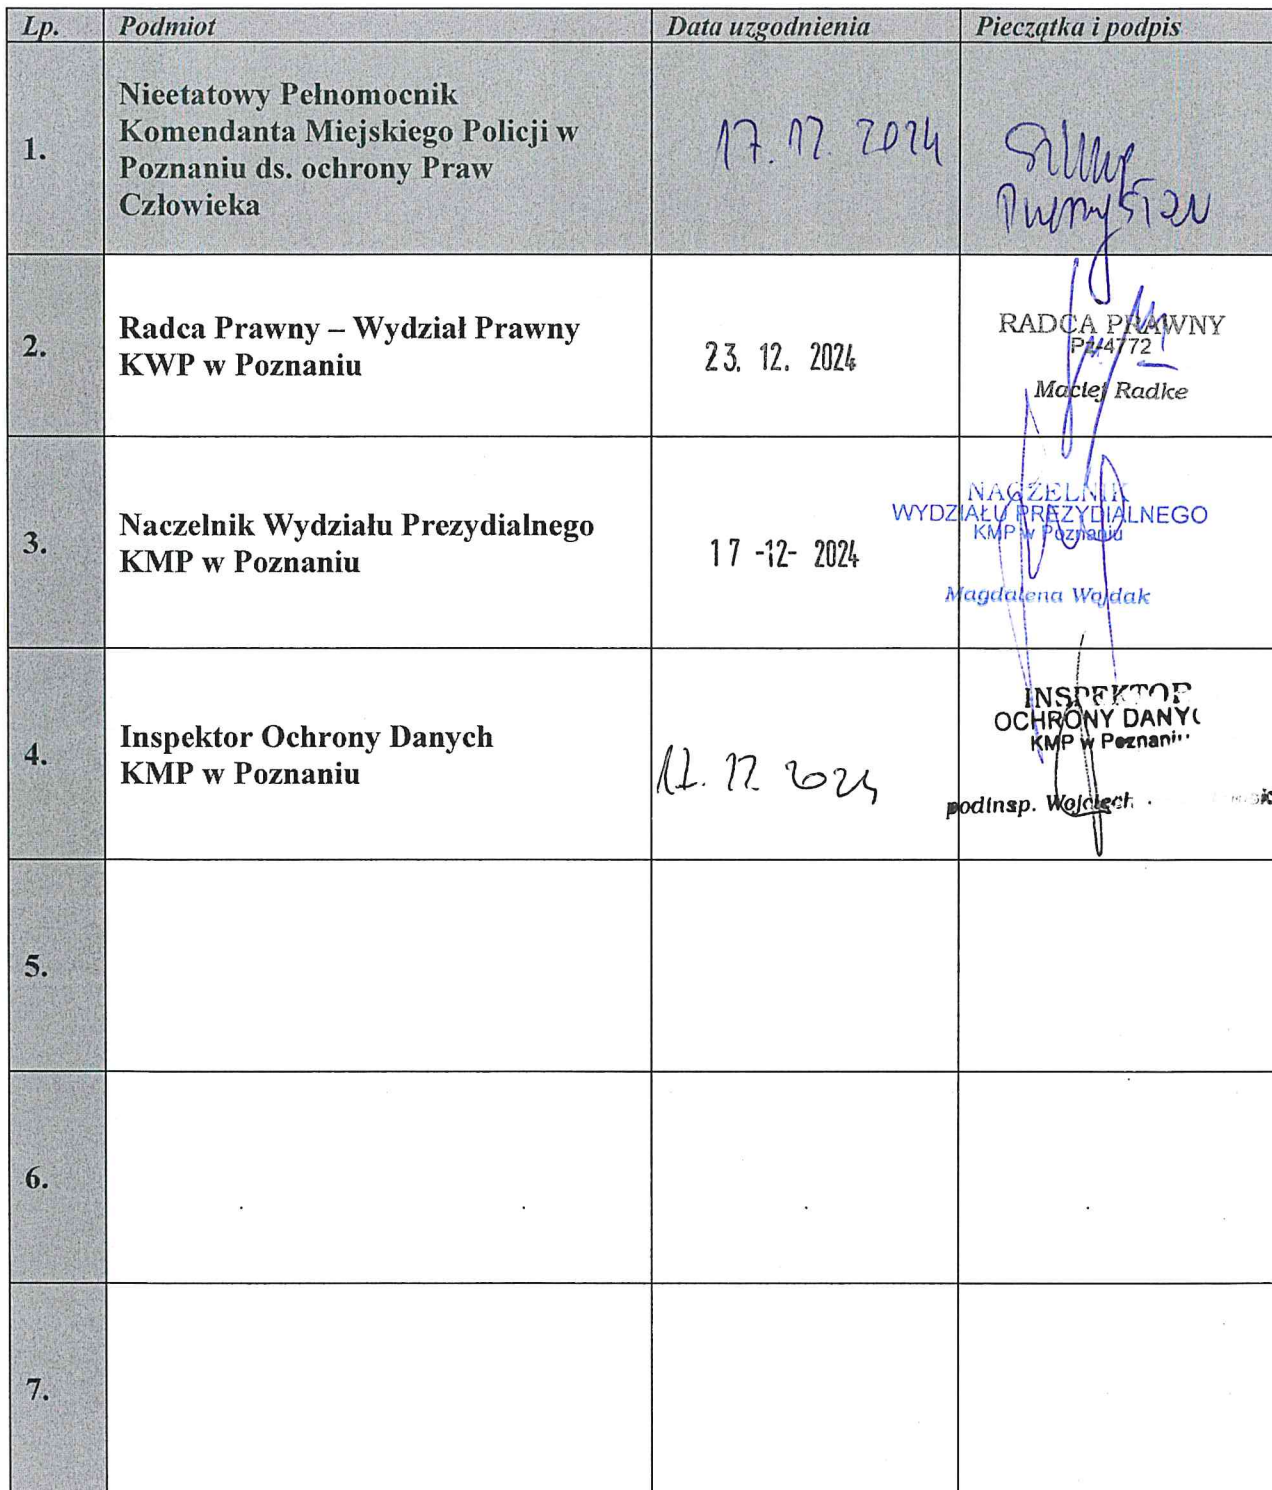 Lp. Podmiot Data uzgodnienia Pieczątka i podpis
1.
Nieetatowy Pełnomocnik
Komendanta Miejskiego Policji w
Poznaniu ds. ochrony Praw
Człowieka
17. 12. 2024
2.
Radca Prawny – Wydział Prawny
KWP w Poznaniu
23. 12. 2024
RADCA PRAWNY
Pz-4772
Maciej Radke
3.
Naczelnik Wydziału Prezydialnego
KMP w Poznaniu
17 -12- 2024
NACZELNIK
WYDZIAŁU PREZYDIALNEGO
KMP w Poznaniu
Magdalena Wojdak
4.
Inspektor Ochrony Danych
KMP w Poznaniu
17. 12. 2024
INSPEKTOR
OCHRONY DANY
KMP w Poznaniu
podinsp. Wojciech
5.
6.
7.